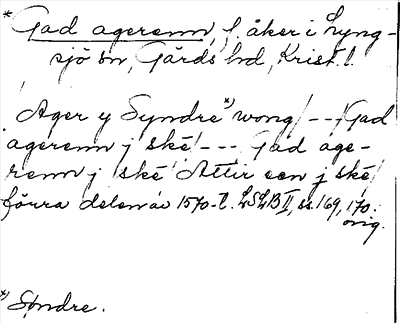 * Gad agerenn, f. åker i Lyng-
sjö sn, Gärds hd, Krist. l.
'Ager y Syndre*) wong/---/Gad
agerenn j ské/---Gad age-
renn j ské/Attir een j ské'
förra delen av 1570-t. LSLB II, ss. 169, 170.
orig.
*) Søndre.